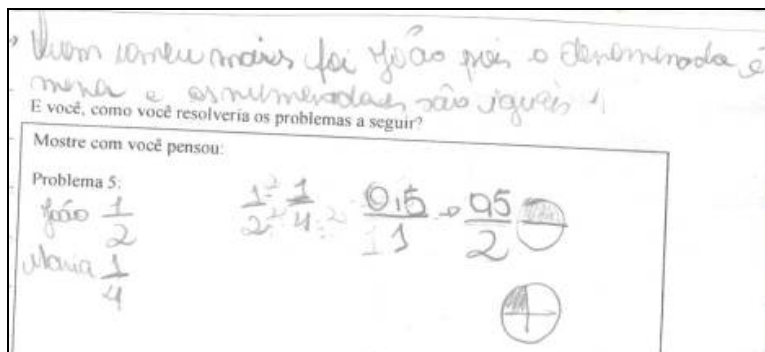 Quem comeu mais foi João pois o denominado é
menor e os numeradores são iguais
E você, como você resolveria os problemas a seguir?
Mostre com você pensou:
Problema 5:
João 1/2 1:2/2:2 1/4:2 0,5/1 → 0,5/2
Maria 1/4